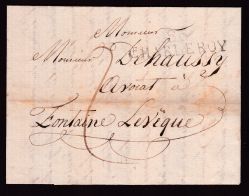 Monsieur
CHARLEROY
Monsieur Dehaussy
avocat à
Fontaine Levêque